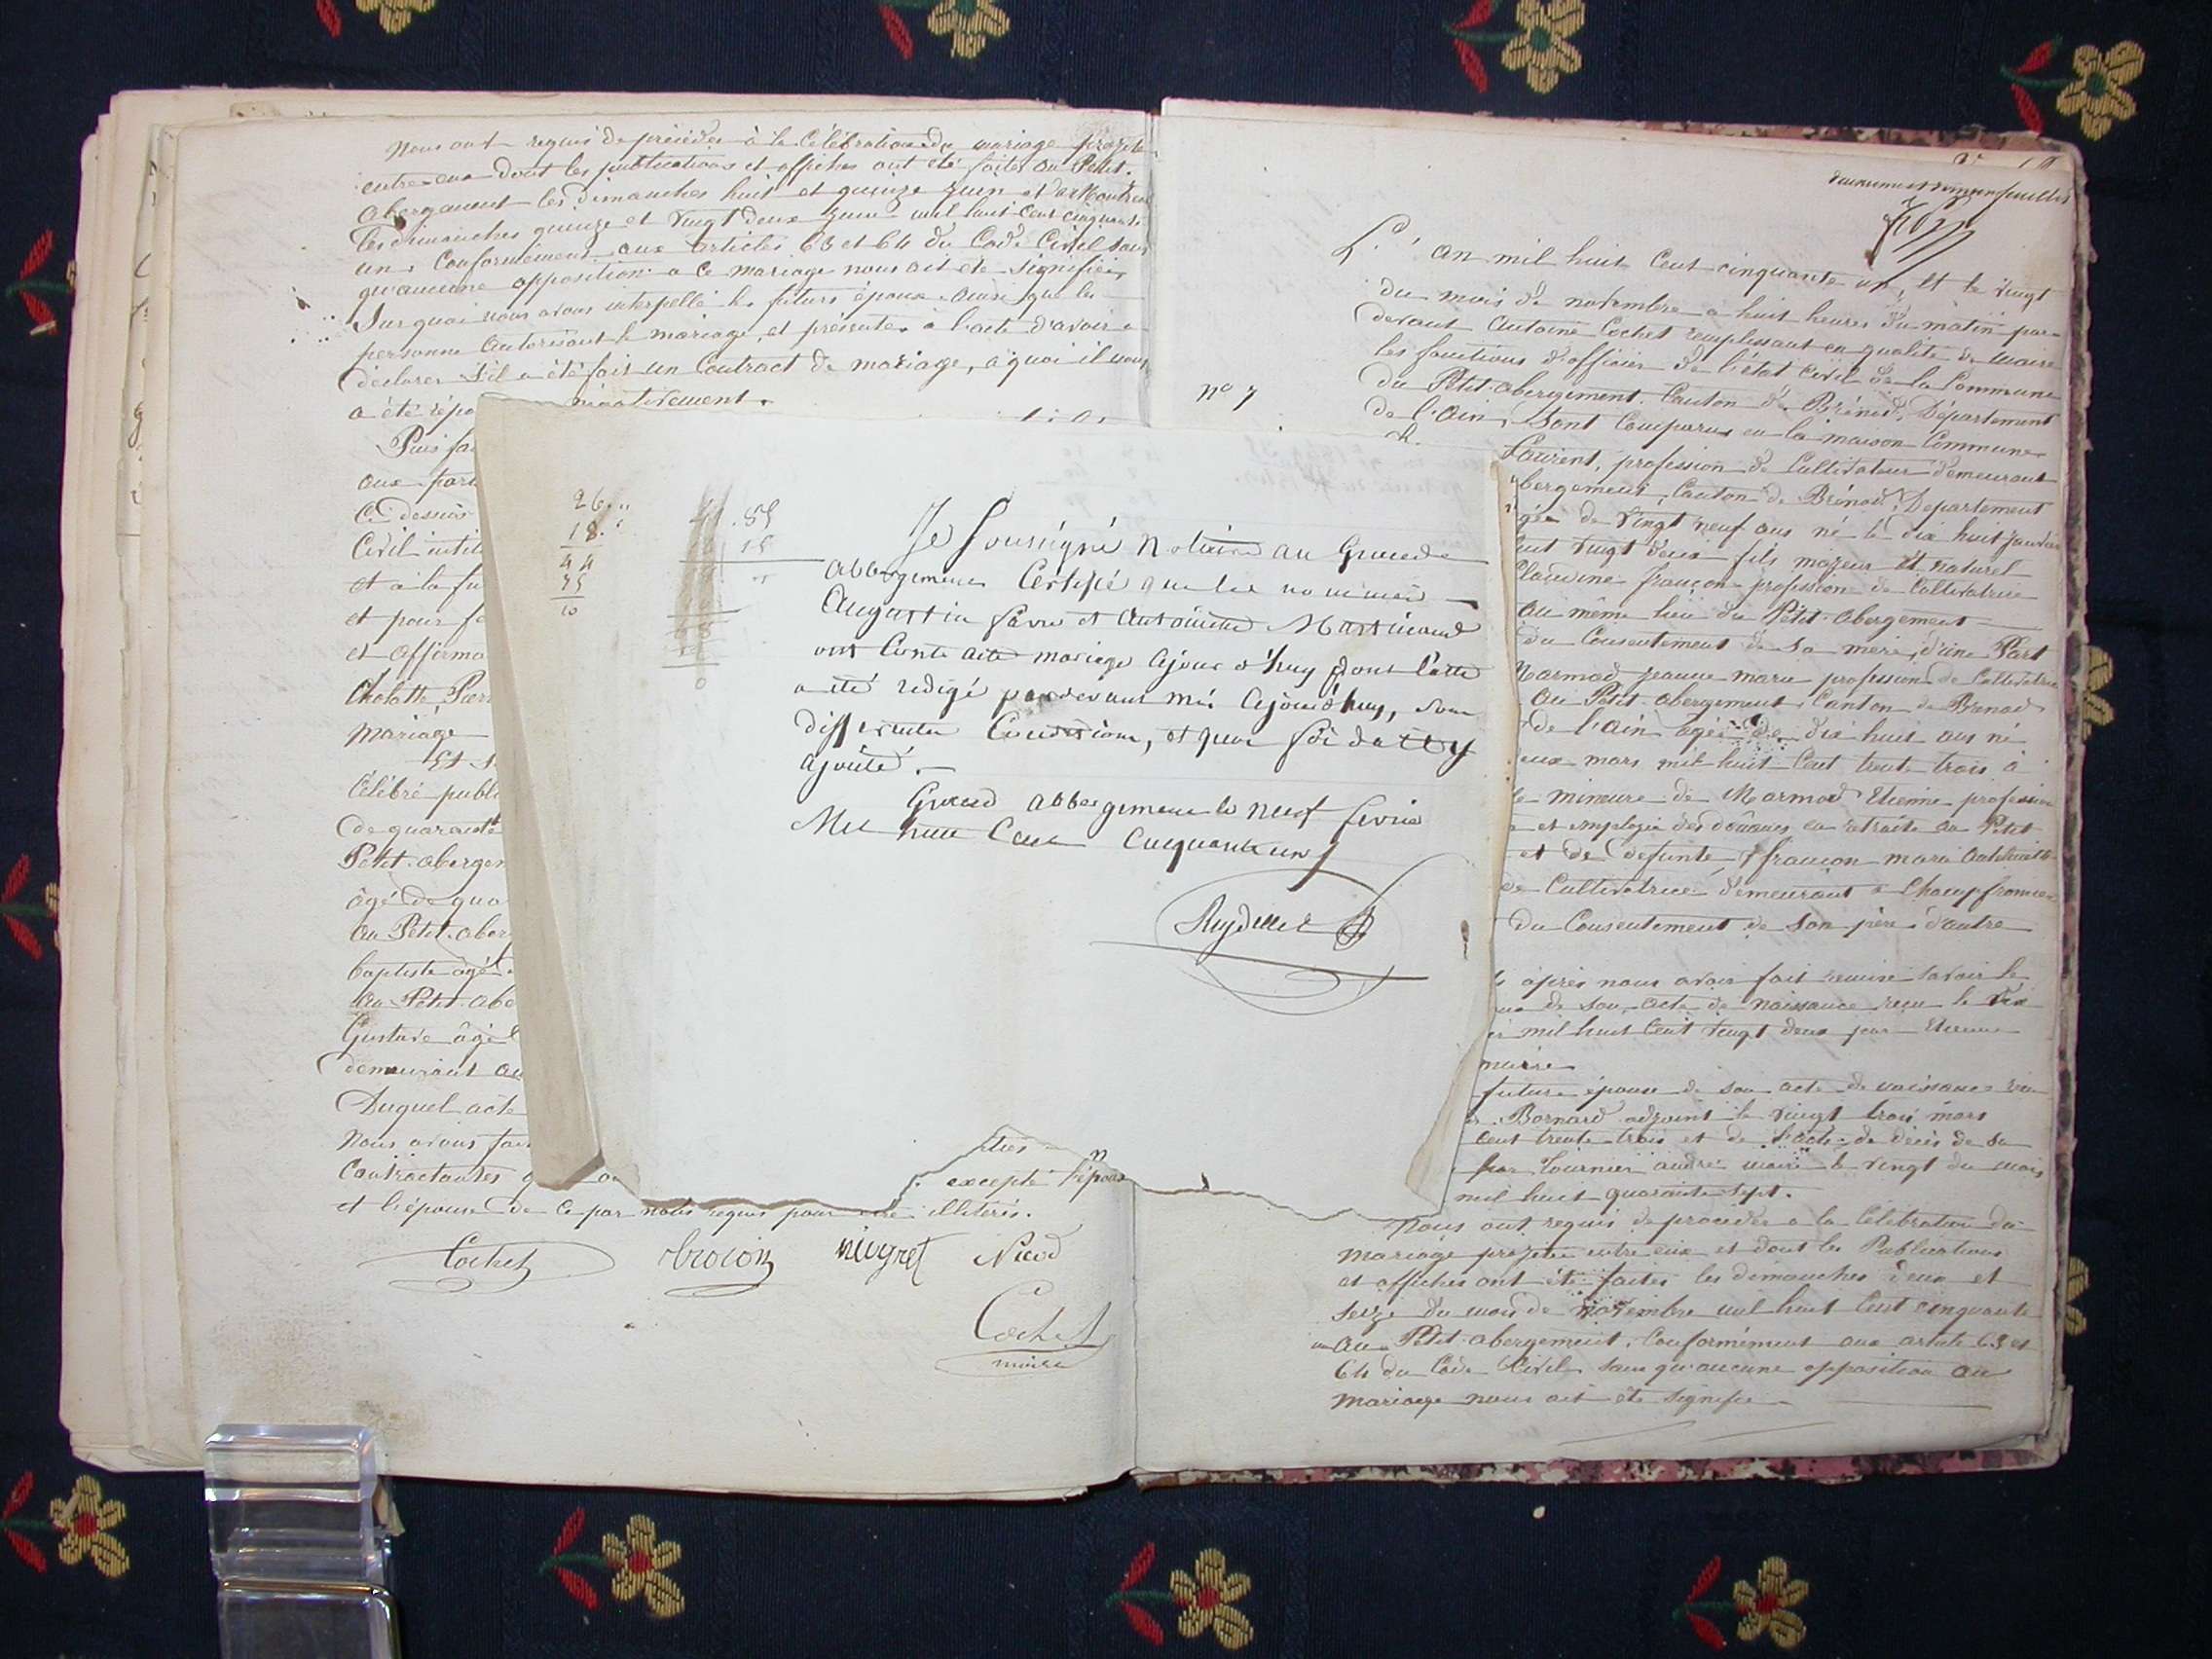 Nous ont requis de procéder à la Célébration du mariage projeté
entre eux dont les publications et affiches ont été faites au Petit.
abergement les dimanches huit et quinze juin et
les dimanches quinze et vingt deux juin mil huit cent cinquante
un, Conformément aux articles 63 et 64 du Code Civil sans
qu'aucune opposition a ce mariage nous ait été signifiée,
Sur quoi nous avons interpellé les futurs époux ainsi que les
personne autorisant le mariage, et présentes à l'acte d'avoir a
déclarer s'il a été fait un Contract de mariage, à quoi il nous
a été répo négativement.
Puis fa
aux part
Ci dessus
Civil intit
et a la fu
et pour fo
et affirma
Chalotte, Pierr
mariage
Et
Célébré publi
de quarante
Petit-abergem
âgé de qua
au Petit-aber
baptiste âgé
au Petit-abe
Gustave âgé
demeurant au
Duquel acte
Nous avons fai
Contractantes q
excepté l'époux
et l'épouse de ce par nous requis pour être illiterés.
Cochet brocon nicod
Cochet
maire
26 "
18 "
44
75
10
. 85
15
Je Soussigné Notaire au Grand
abbergement Certifie que les nommés
Augustin favre et Antoinette Martinand
ont Contracté mariage Ajourd'huy dont l'acte
a été redigé pardevant moi Ajourd'huy, sous
differentes Conditions, et pour foi
ajouté.
Grand abbergement le neuf fevrier
Mil huit Cent Cinquante un
Nº 7
L'an mil huit Cent cinquante un, et le vingt
du mois de novembre à huit heures du matin par-
devant Antoine Cochet remplissant en qualité de maire
les fonctions d'officier de l'état civil de la Commune
du Petit-abergement Canton de Brénod, Département
de l'ain, Sont Comparus en la maison Commune
Laurent, profession de Cultivateur demeurant
bergement, Canton de Brénod, Département
gée de vingt neuf ans né le dix huit janvier
ent vingt deux fils majeur et naturel
Claudine françon profession de Cultivatrice
au même lieu du Petit-abergement
du Consentement de sa mère, d'une Part
Marmod jeanne marie profession de Cultivatrice
au Petit-abergement Canton de Brenod
de l'ain agée de dix huit ans né
eux mars mil huit Cent trente trois à
le mineure de Marmod Etienne profession
et employé des douanes en retraite au Petit
et de defunte françon marie
de Cultivatrice demeurant à Champfromier
du Consentement de son père d'autre
après nous avoir fait remise savoir le
de son acte de naissance reçu le dix
mil huit Cent vingt deux par Etienne
maire
future épouse de son acte de naissance
Bornard adjoint le vingt trois mars
cent trente trois et de l'acte de décès de sa
par Tournier andré maire le vingt du mois
mil huit quarante sept.
Nous ont requis de procéder a la Célébration du
mariage projeté entre eux et dont les Publications
et affiches ont été faites les dimanches deux et
seize du mois de novembre mil huit Cent cinquante
un au Petit-abergement, Conformément aux article 63 et
64 du Code Civil sans qu'aucune opposition au
mariage nous ait été signifiée